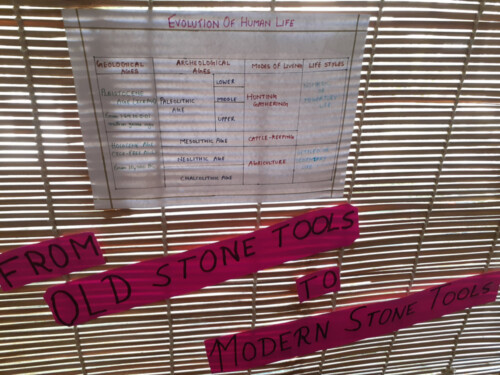 EVOLUTION OF HUMAN LIFE
GEOLOGICAL AGES
ARCHEOLOGICAL AGES
MODES OF LIVING
LIFE STYLES
PALEOLITHIC AGE
LOWER
MIDDLE
UPPER
HUNTING GATHERING
MESOLITHIC AGE
CATTLE-KEEPING
NEOLITHIC AGE
AGRICULTURE
CHALCOLITHIC AGE
FROM
OLD STONE TOOLS
TO
MODERN STONE TOOLS